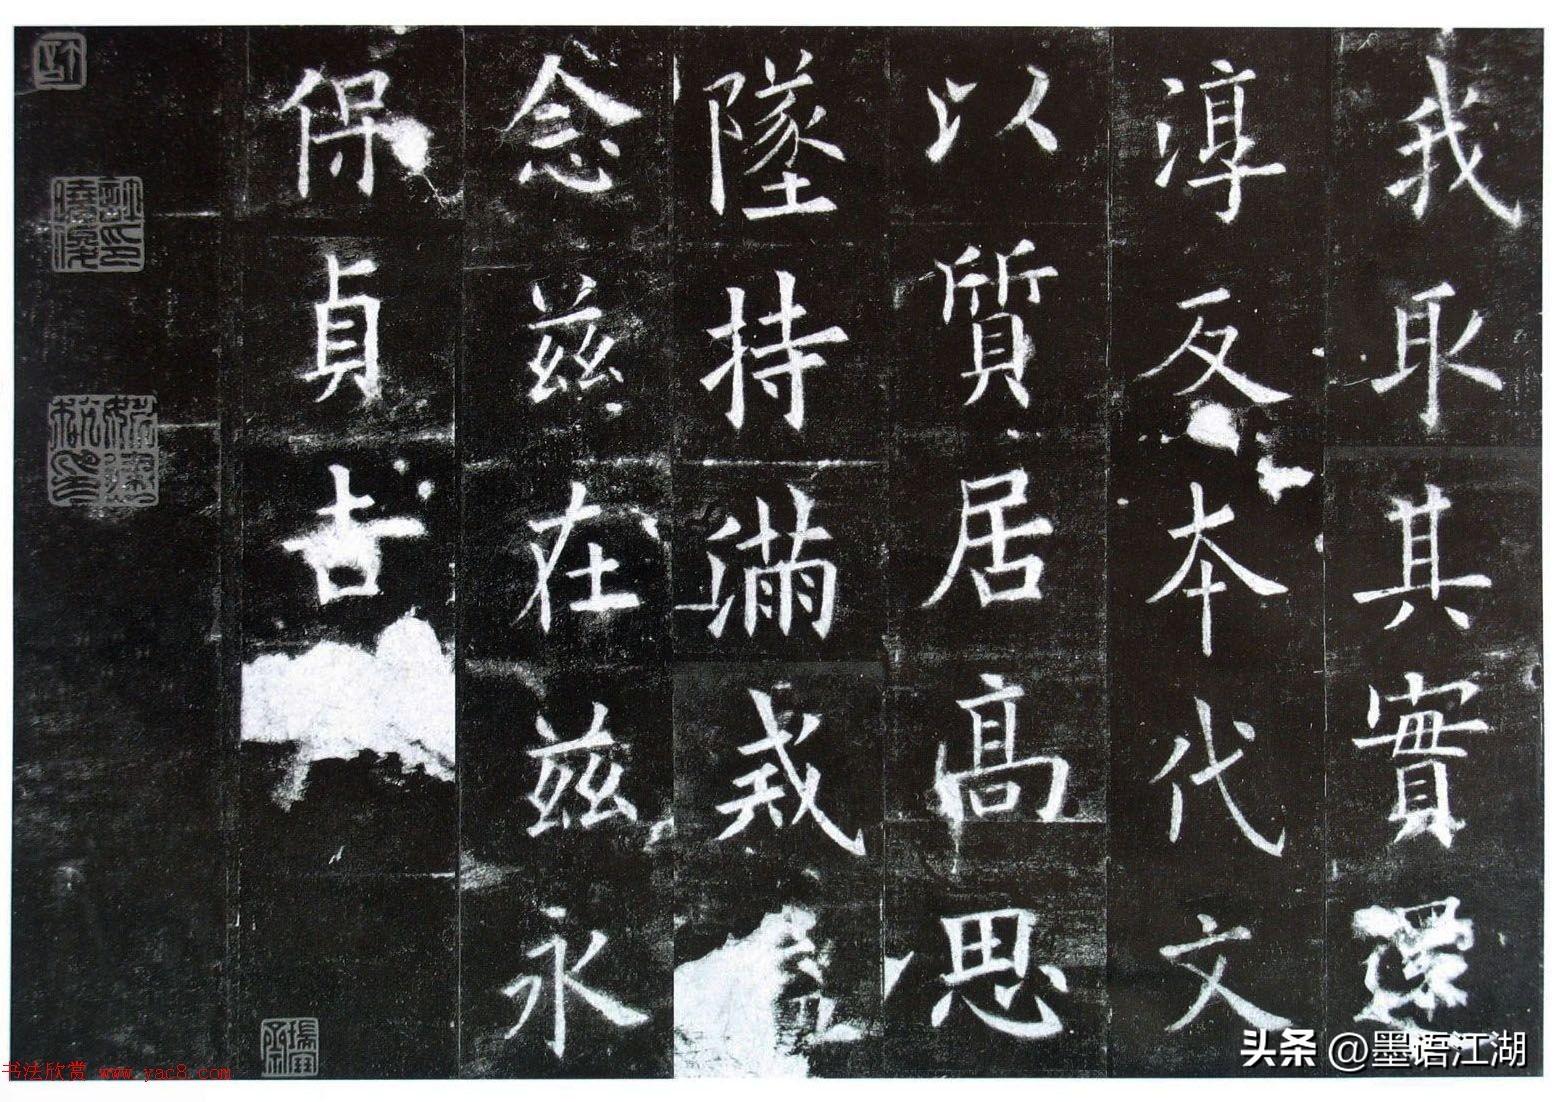 我取其實還
淳反本代文
以質居高思
墜持滿戒溢
念茲在茲永
保貞吉
书法欣赏 www.yac8.com
头条 @墨语江湖